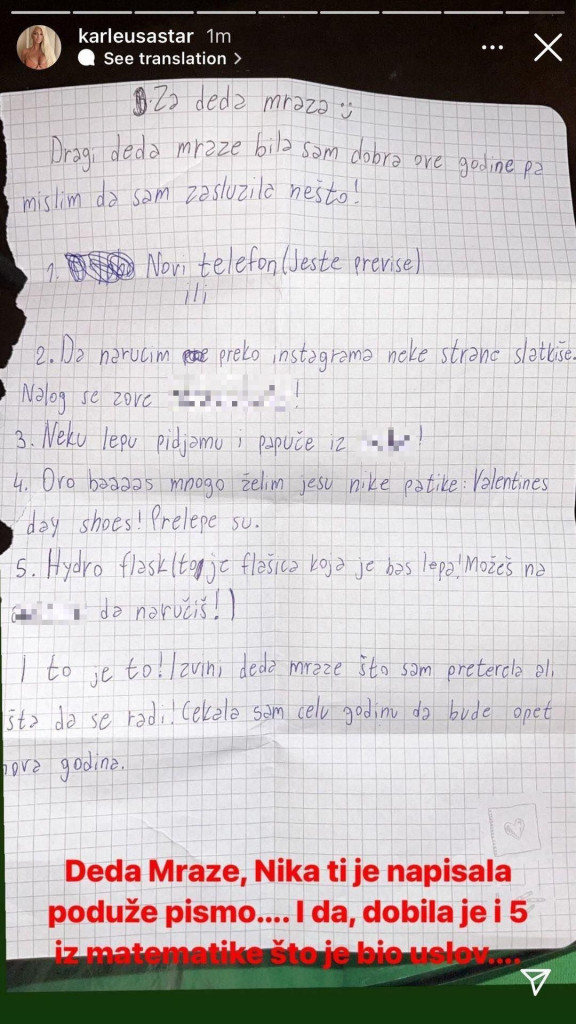 karleusastar 1m
See translation >
Za deda mraza
Dragi deda mraze bila sam dobra ove godine pa
mislim da sam zasluzila nešto!
1. Novi telefon (Jeste previse)
ili
2. Da narucim preko instagrama neke strane slatkiše.
Nalog se zove !
3. Neku lepu pidjamu i papuče iz !
4. Ovo baaaas mnogo želim jesu nike patike: Valentines
day shoes! Prelepe su.
5. Hydro flask (to je flašica koja je bas lepa! Možeš na
da naručiš!)
I to je to! Izvini deda mraze što sam preterala ali
šta da se radi! Cekala sam celu godinu da bude opet
nova godina.
Deda Mraze, Nika ti je napisala
poduže pismo.... I da, dobila je i 5
iz matematike što je bio uslov....